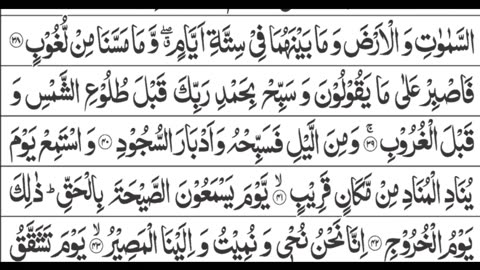 السَّمٰوٰتِ وَ الْاَرْضَ وَ مَا بَيْنَهُمَا فِيْ سِتَّةِ اَيَّامٍ ۖۗ وَّ مَا مَسَّنَا مِنْ لُّغُوْبٍ ﴿۳۸﴾
فَاصْبِرْ عَلٰى مَا يَقُوْلُوْنَ وَ سَبِّحْ بِحَمْدِ رَبِّكَ قَبْلَ طُلُوْعِ الشَّمْسِ وَ
قَبْلَ الْغُرُوْبِ ﴿۳۹﴾ۚ وَمِنَ الَّيْلِ فَسَبِّحْهُ وَ اَدْبَارَ السُّجُوْدِ ﴿۴۰﴾ وَ اسْتَمِعْ يَوْمَ
يُنَادِ الْمُنَادِ مِنْ مَّكَانٍ قَرِيْبٍ ﴿۴۱﴾ۙ يَّوْمَ يَسْمَعُوْنَ الصَّيْحَةَ بِالْحَقِّ ؕ ذٰلِكَ
يَوْمُ الْخُرُوْجِ ﴿۴۲﴾ اِنَّا نَحْنُ نُحْيٖ وَ نُمِيْتُ وَ اِلَيْنَا الْمَصِيْرُ ﴿۴۳﴾ۙ يَوْمَ تَشَقَّقُ